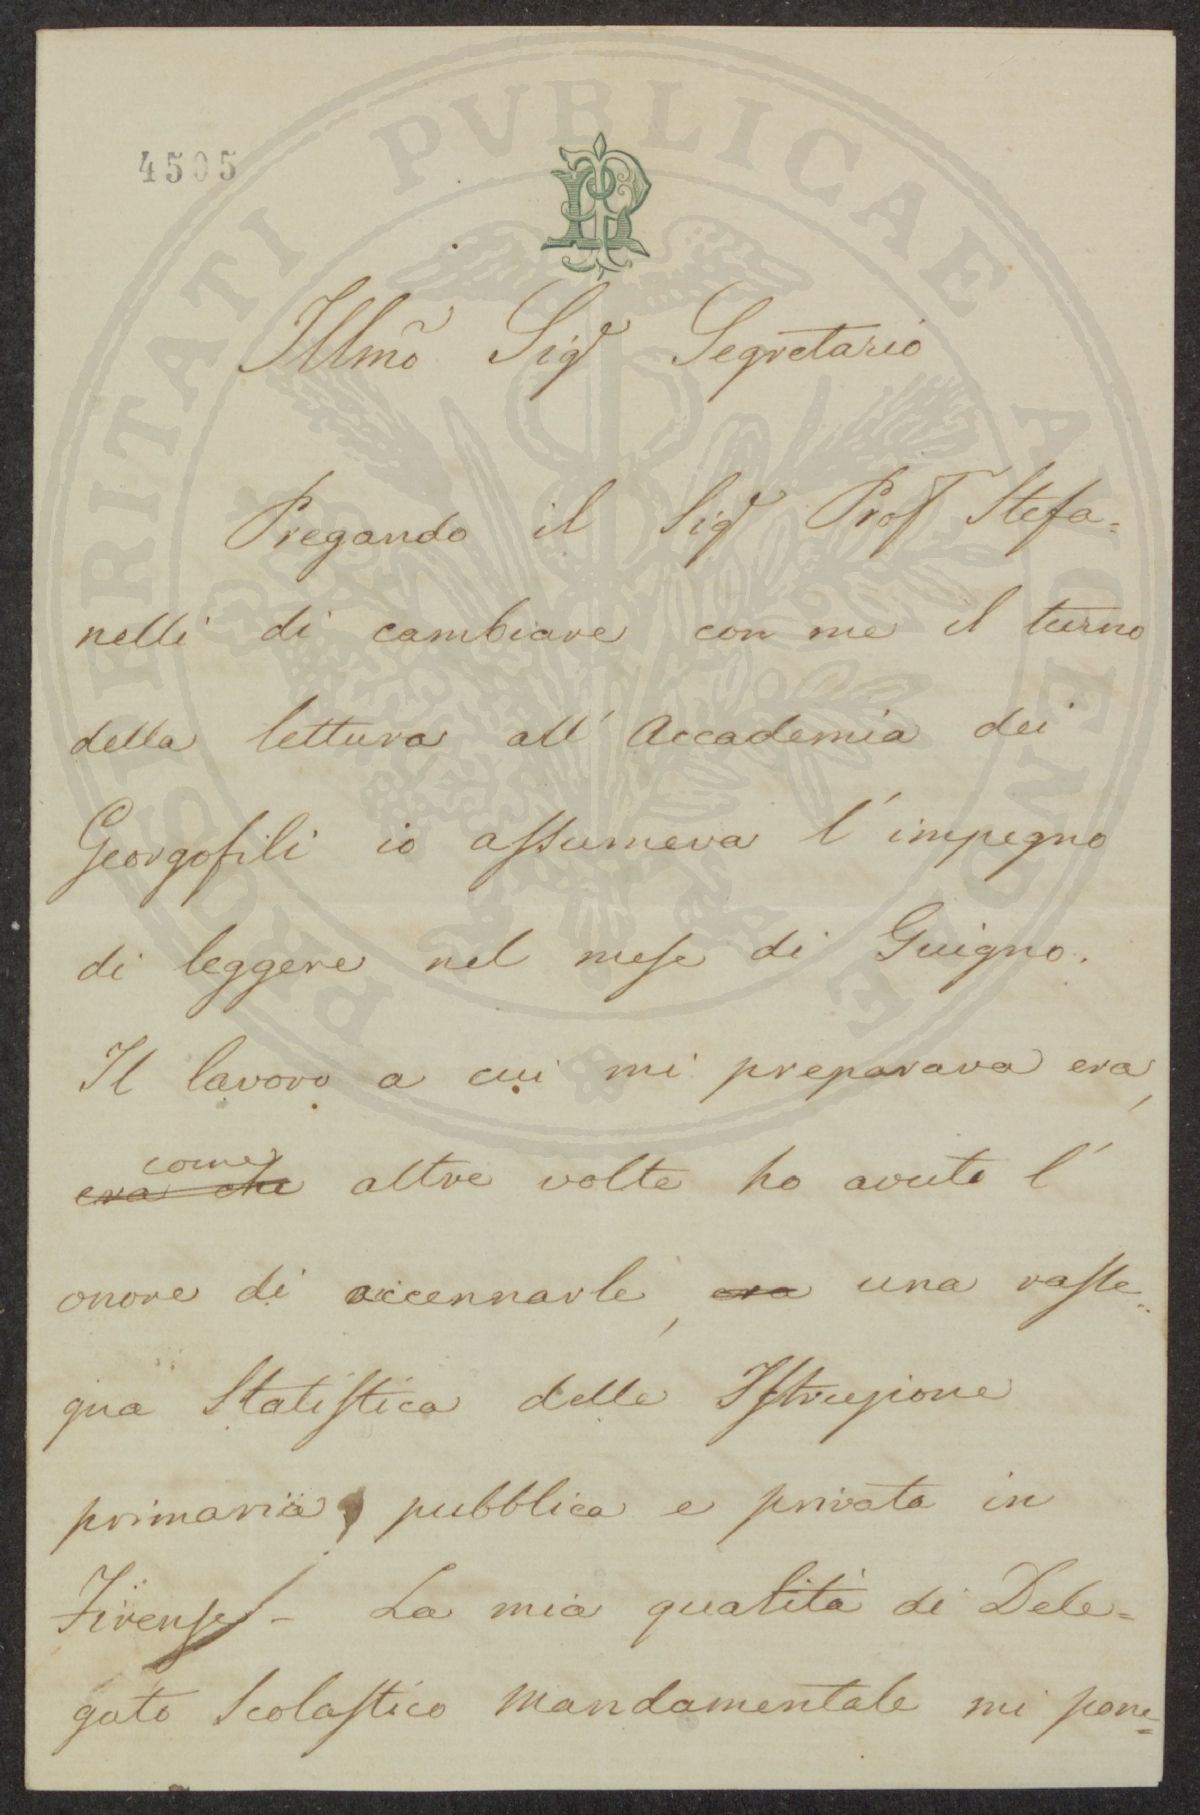 PROSPERITATI PVBLICAE AVGENDAE
4505
PR
Illmõ Sigr Segretario
Pregando il Sigr Prof Stefa=
nelli di cambiare con me il turno
della lettura all' Accademia dei
Georgofili io assumeva l'impegno
di leggere nel mese di Guigno.
Il lavoro a cui mi preparava era,
come
era che altre volte ho avuto l'
onore di accennarle, era una rasse=
gna Statistica delle Istruzione
primaria, pubblica e privata in
Firenze - La mia qualità di Dele=
gato Scolastico Mandamentale mi pone=